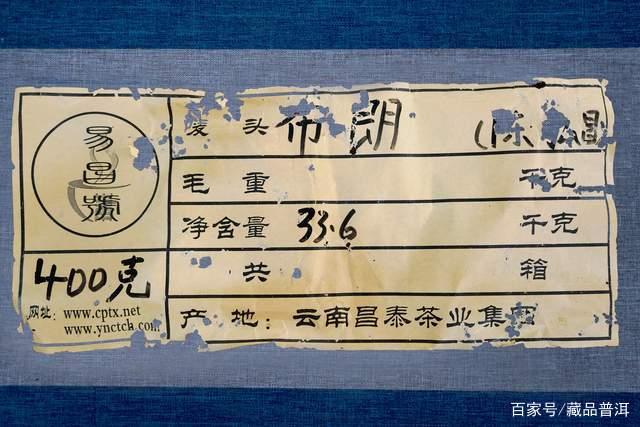 易昌號
400克
网址: www.cptx.net
www.ynctch.com
唛 头 布朗
毛 重 千克
净含量 33.6 千克
共 箱
产 地: 云南昌泰茶业集团
百家号/藏品普洱